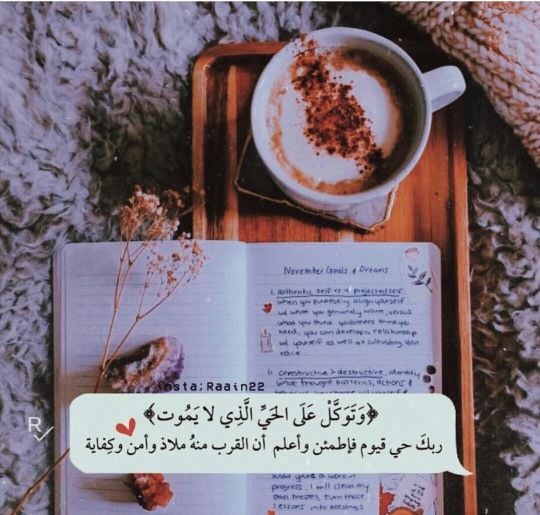 November Goals & Dreams
1. authentic self vs. projected self
when you purposely align yourself
w/ what you genuinely want, versus
what you think
need, you can develop relationship
w/ yourself as well as cultivating your
voice.
11. constructive > destructive, identify
what thought patterns, actions &
insta;Raain22
﴿وَتَوَكَّلْ عَلَى الحَيِّ الَّذِي لا يَمُوت﴾
ربكَ حي قيوم فإطمئن وأعلم أن القرب منهُ ملاذ وأمن وكِفاية
R
progress. I will clean my
own messes, turn those
lessons into blessings.